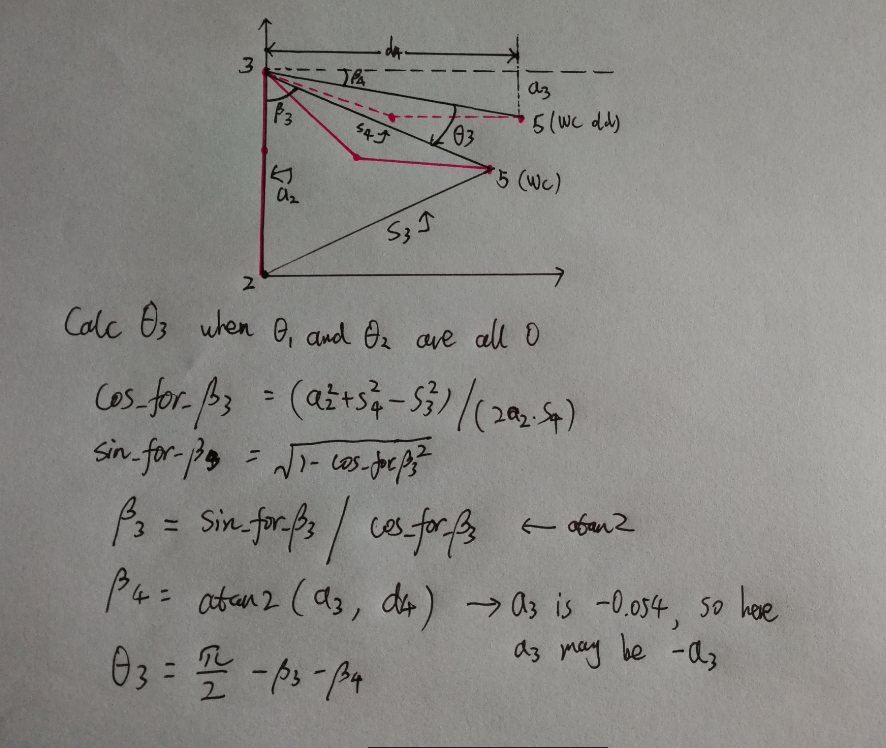 d4
3
β4
a3
β3
5 (wc dd)
S4
θ3
5 (wc)
a2
S3
2
Calc θ3 when θ1 and θ2 are all 0
cos_for_β3 = (a2²+s4²-S3²)/(2a2·S4)
sin_for_β3 = √1-cos_forβ3²
β3 = sin_for_β3 / cos_for_β3 ← atan2
β4 = atan2 (a3, d4) → a3 is -0.054, so here
a3 may be -a3
θ3 = π/2 - β3 - β4